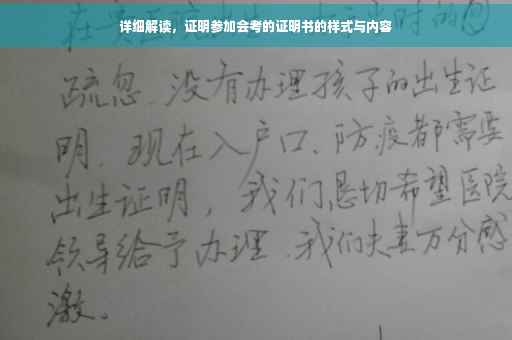 详细解读，证明参加会考的证明书的样式与内容
疏忽、没有办理孩子的出生证
明、现在入户口、防疫都需要
出生证明，我们恳切希望医院
领导给予办理、我们夫妻万分感
激。